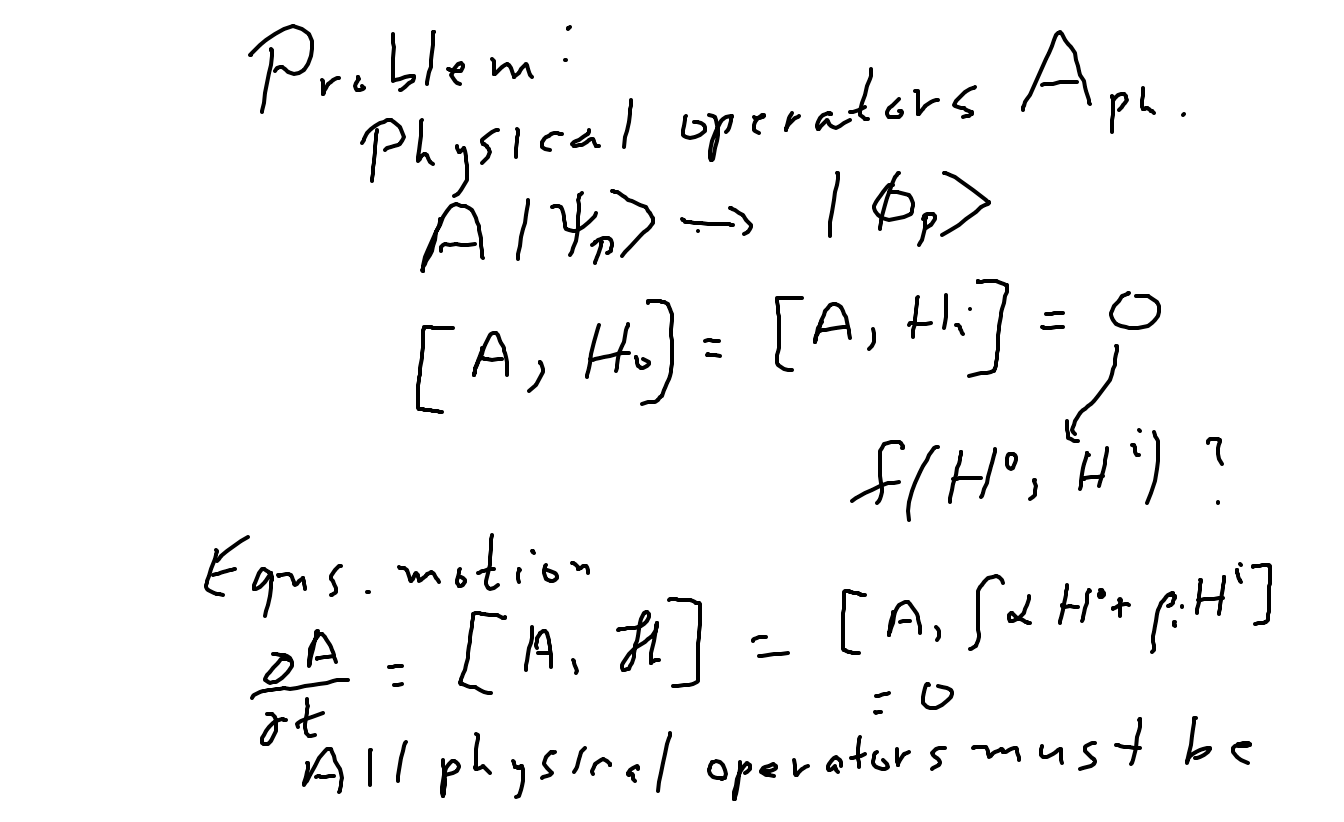 Problem:
Physical operators A_ph.
A|ψ_p> → |φ_p>
[A, H_0] = [A, H_i] = 0
f(H^0, H^i) ?
Eqns. motion
∂A/∂t = [A, ℋ] = [A, ∫α H^0 + β_i H^i]
= 0
All physical operators must be